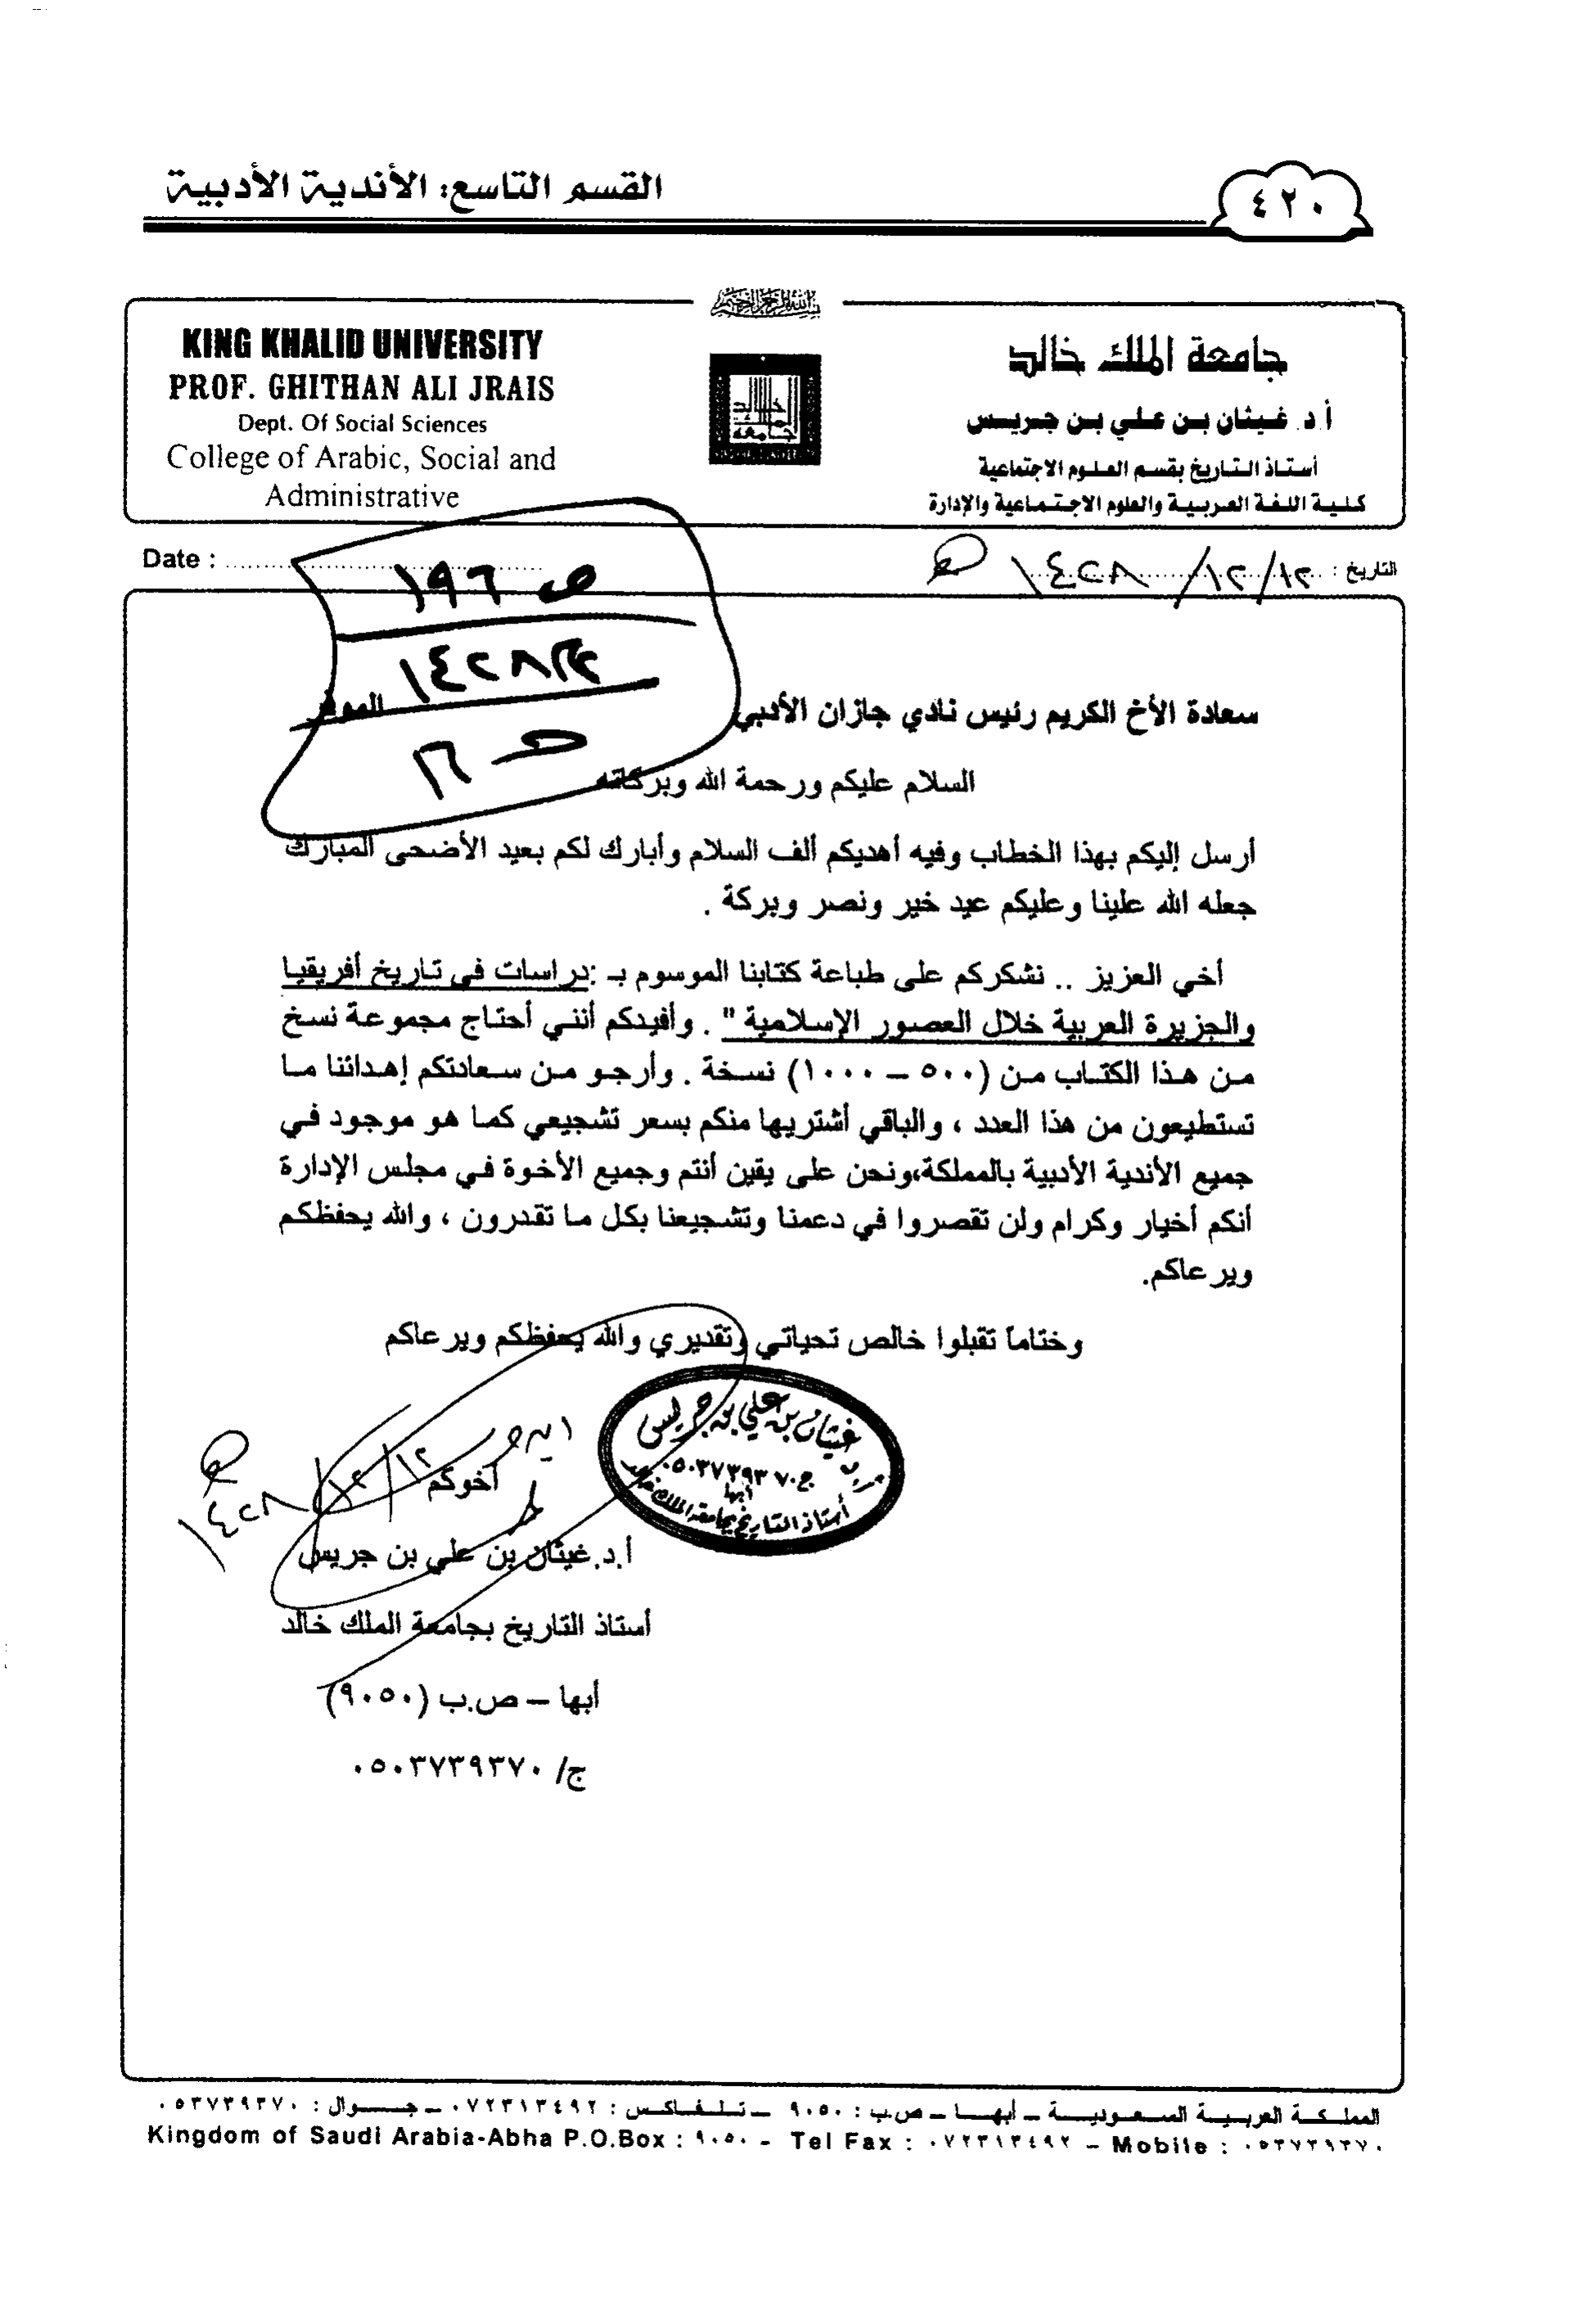 القسم التاسع: الأندية الأدبية
٤٢٠
بسم الله الرحمن الرحيم
KING KHALID UNIVERSITY
PROF. GHITHAN ALI JRAIS
Dept. Of Social Sciences
College of Arabic, Social and
Administrative
جامعة الملك خالد
أ.د. غيثان بن علي بن جريس
أستاذ التاريخ بقسم العلوم الاجتماعية
كلية اللغة العربية والعلوم الاجتماعية والإدارة
Date :
التاريخ : ١٢/١٢/١٤٢٨هـ
ص ١٩٦
سعادة الأخ الكريم رئيس نادي جازان الأدبي الموقر
السلام عليكم ورحمة الله وبركاته
أرسل إليكم بهذا الخطاب وفيه أهديكم ألف السلام وأبارك لكم بعيد الأضحى المبارك
جعله الله علينا وعليكم عيد خير ونصر وبركة .
أخي العزيز .. نشكركم على طباعة كتابنا الموسوم بـ :دراسات في تاريخ أفريقيا
والجزيرة العربية خلال العصور الإسلامية " . وأفيدكم أنني أحتاج مجموعة نسخ
من هذا الكتاب من (٥٠٠ – ١٠٠٠) نسخة . وأرجو من سعادتكم إهدائنا ما
تستطيعون من هذا العدد ، والباقي أشتريها منكم بسعر تشجيعي كما هو موجود في
جميع الأندية الأدبية بالمملكة،ونحن على يقين أنتم وجميع الأخوة في مجلس الإدارة
أنكم أخيار وكرام ولن تقصروا في دعمنا وتشجيعنا بكل ما تقدرون ، والله يحفظكم
ويرعاكم.
وختاماً تقبلوا خالص تحياتي وتقديري والله يحفظكم ويرعاكم
غيثان بن علي بن جريس
ج٠٥٠٣٧٣٩٣٧٠
أبها
أستاذ التاريخ بجامعة الملك خالد
أخوكم
١٢/١٢/١٤٢٨هـ
أ.د.غيثان بن علي بن جريس
أستاذ التاريخ بجامعة الملك خالد
أبها – ص.ب (٩٠٥٠)
ج/ ٠٥٠٣٧٣٩٣٧٠
المملكة العربية السعودية – أبها – ص.ب : ٩٠٥٠ – تلفاكس : ٠٧٢٣١٣٤٩٢ – جوال : ٠٥٣٧٣٩٣٧٠
Kingdom of Saudi Arabia-Abha P.O.Box : ٩٠٥٠ - Tel Fax : ٠٧٢٣١٣٤٩٢ – Mobile : ٠٥٣٧٣٩٣٧٠